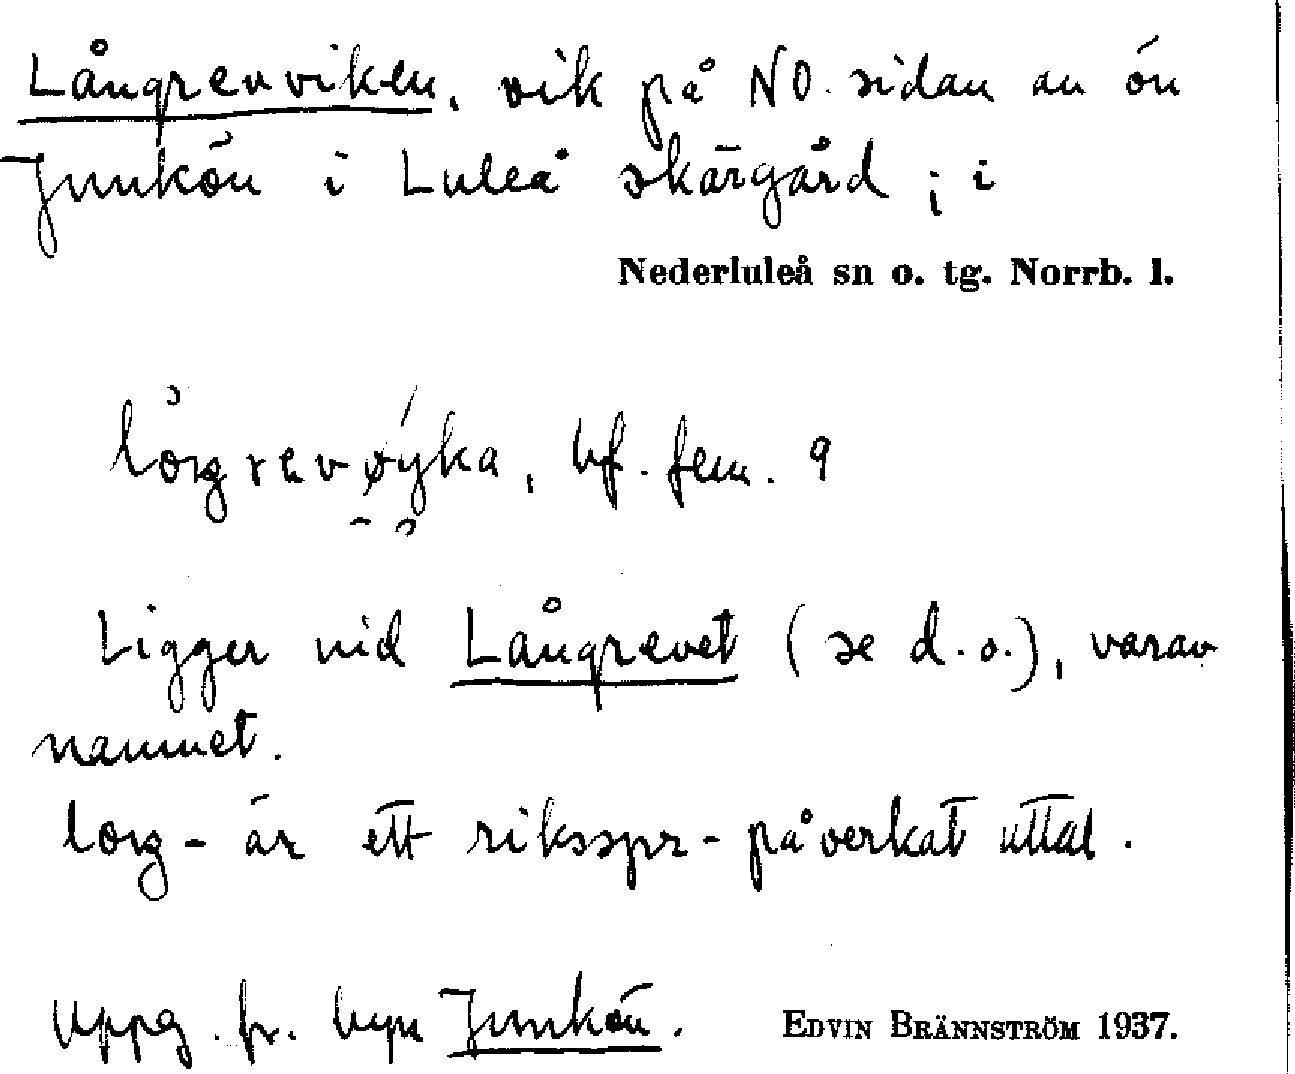 Långrevviken, vik på NO. sidan av ön
Junkön i Luleå skärgård; i
Nederluleå sn o. tg. Norrb. l.
bf. fem.
Ligger vid Långrevet (se d.o.), varav
namnet.
är ett riksspr-påverkat uttal.
Uppg. fr. byn Junkön. EDVIN BRÄNNSTRÖM 1937.